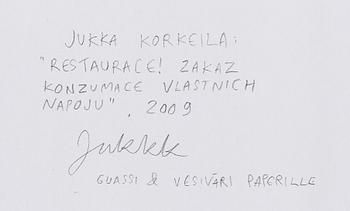 JUKKA KORKEILA:
"RESTAURACE! ZAKAZ
KONZUMACE VLASTNICH
NAPOJU", 2009
GUASSI & VESIVÄRI PAPERILLE